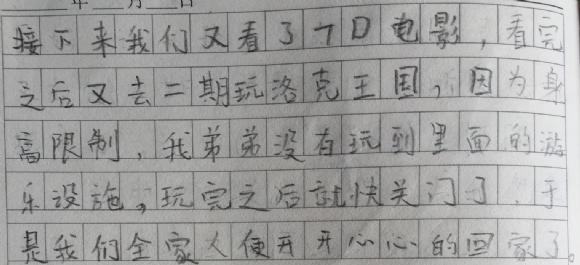 年 月 日
接下来我们又看了7D电影，看完
之后又去二期玩洛克王国，因为身
高限制，我弟弟没有玩到里面的游
乐设施。玩完之后就快关门了，于
是我们全家人便开开心心的回家了。